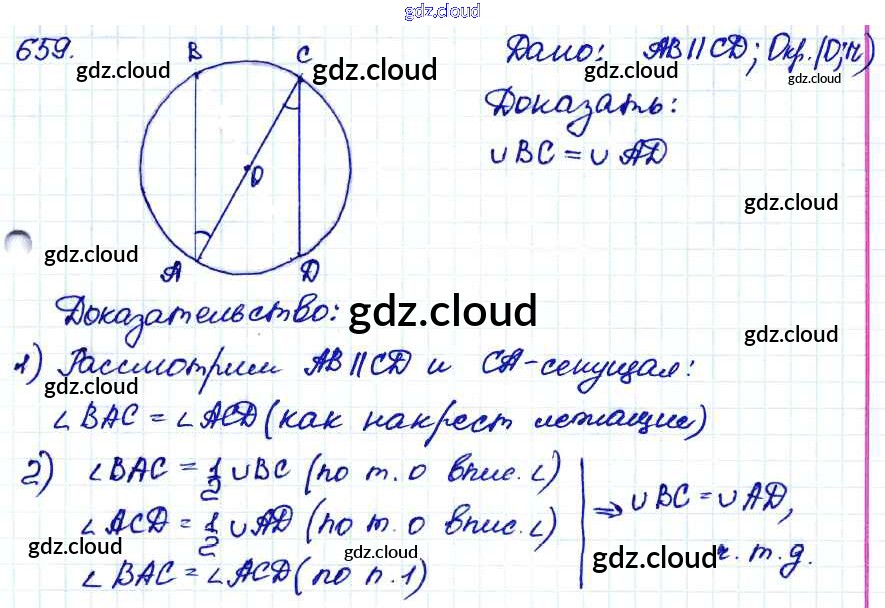 gdz.cloud
659.
B C
Дано: AB||CD; Окр.(O;r)
gdz.cloud gdz.cloud gdz.cloud gdz.cloud
Доказать:
∪BC = ∪AD
O
gdz.cloud
gdz.cloud
A D
Доказательство: gdz.cloud
gdz.cloud
1) Рассмотрим AB||CD и CA-секущая:
gdz.cloud
∠BAC = ∠ACD (как накрест лежащие)
2) ∠BAC = 1/2 ∪BC (по т. о впис. ∠)
∠ACD = 1/2 ∪AD (по т. о впис. ∠)
⇒ ∪BC = ∪AD,
gdz.cloud gdz.cloud gdz.cloud ч.т.д.
∠BAC = ∠ACD (по п. 1)